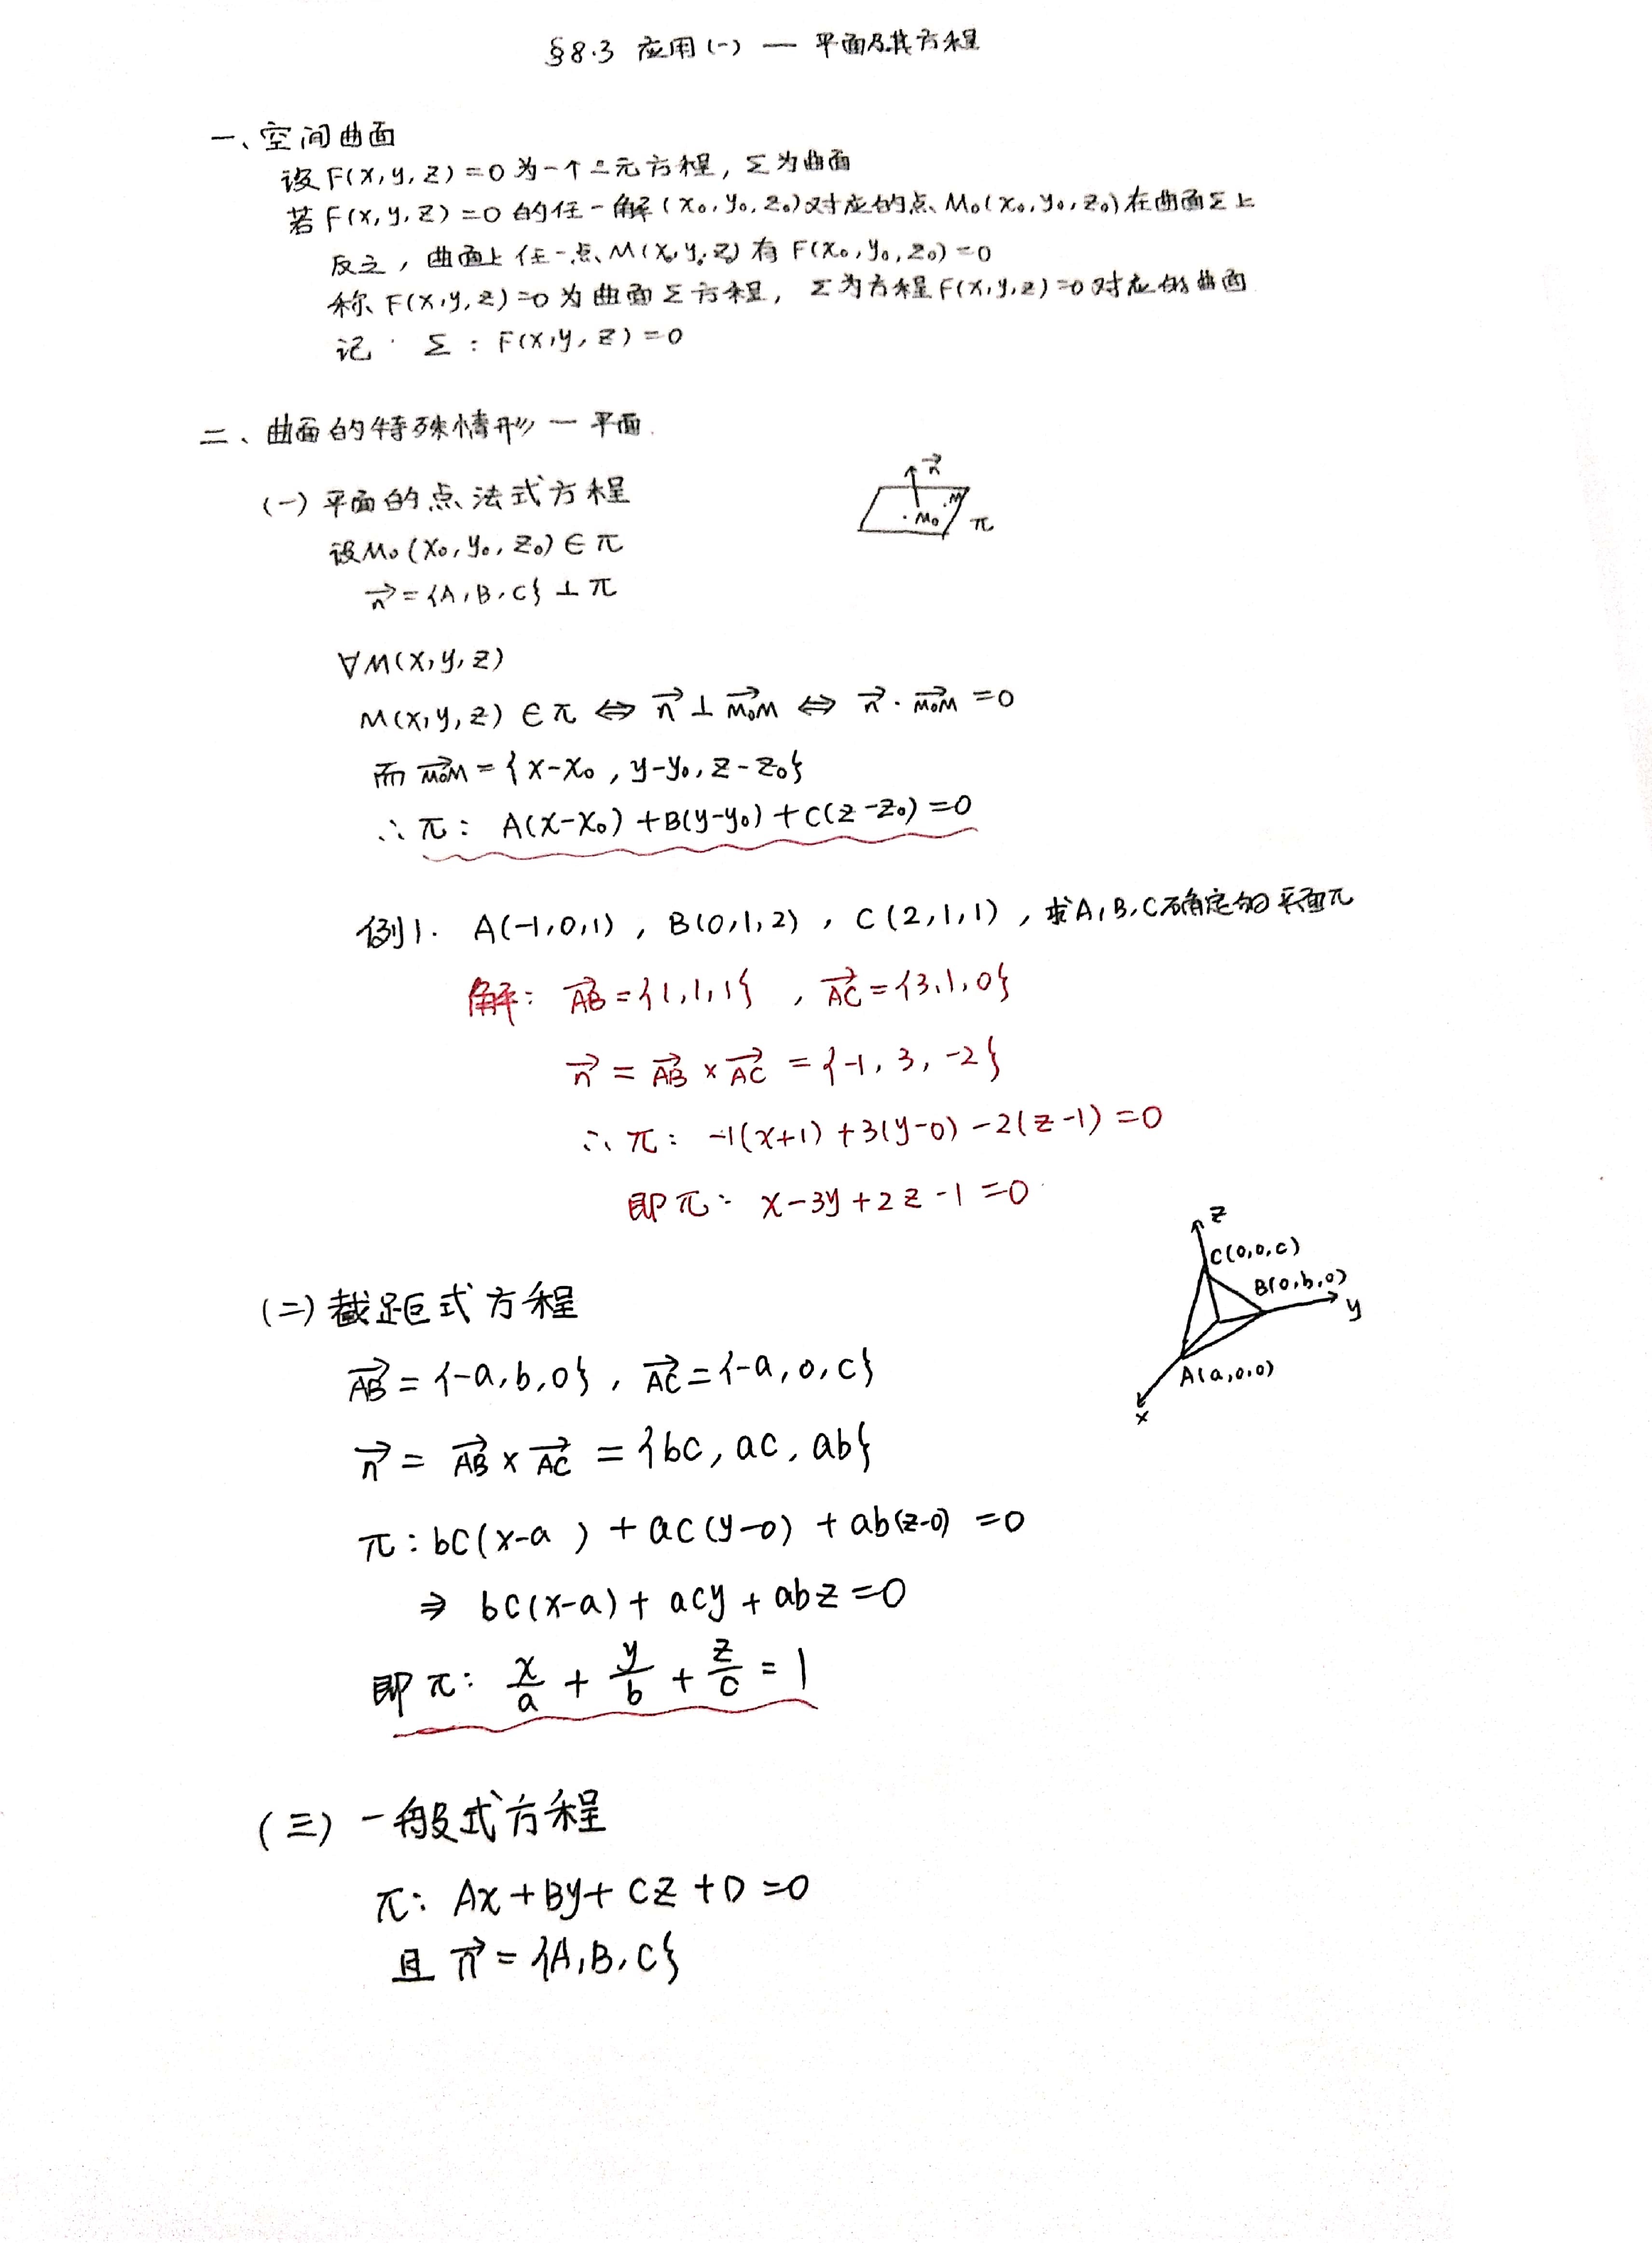 §8.3 应用(一) — 平面及其方程
一、空间曲面
设F(x,y,z)=0为一个三元方程，Σ为曲面
若F(x,y,z)=0的任一解(x₀,y₀,z₀)对应的点M₀(x₀,y₀,z₀)在曲面Σ上
反之，曲面上任一点M(x₀,y₀,z₀)有F(x₀,y₀,z₀)=0
称F(x,y,z)=0为曲面Σ方程，Σ为方程F(x,y,z)=0对应的曲面
记 Σ：F(x,y,z)=0
二、曲面的特殊情形—平面
(一)平面的点法式方程
n⃗
M
M₀
π
设M₀(x₀,y₀,z₀)∈π
n⃗={A,B,C}⊥π
∀M(x,y,z)
M(x,y,z)∈π⇔n⃗⊥M₀M⃗⇔n⃗·M₀M⃗=0
而M₀M⃗={x-x₀,y-y₀,z-z₀}
∴π：A(x-x₀)+B(y-y₀)+C(z-z₀)=0
例1. A(-1,0,1)，B(0,1,2)，C(2,1,1)，求A,B,C确定的平面π
解：AB⃗={1,1,1}，AC⃗={3,1,0}
n⃗=AB⃗×AC⃗={-1,3,-2}
∴π：-1(x+1)+3(y-0)-2(z-1)=0
即π：x-3y+2z-1=0
z
C(0,0,c)
B(0,b,0)
y
A(a,0,0)
x
(二)截距式方程
AB⃗={-a,b,0}，AC⃗={-a,0,c}
n⃗=AB⃗×AC⃗={bc,ac,ab}
π：bc(x-a)+ac(y-0)+ab(z-0)=0
⇒ bc(x-a)+acy+abz=0
即π：x/a+y/b+z/c=1
(三)一般式方程
π：Ax+By+Cz+D=0
且n⃗={A,B,C}